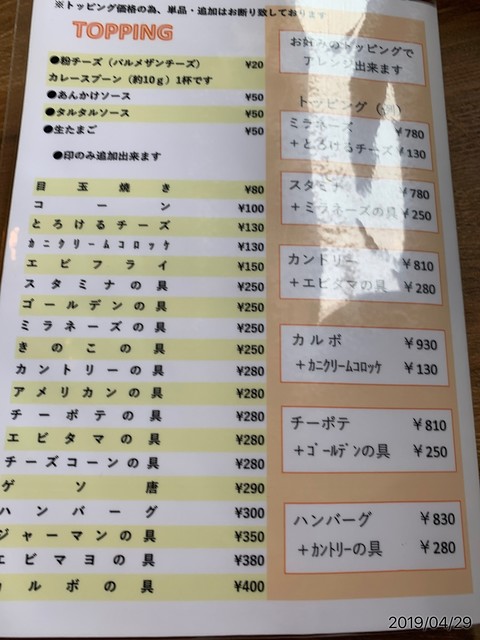 ※トッピング価格の為、単品・追加はお断り致しております
TOPPING
●粉チーズ（パルメザンチーズ） ¥20
カレースプーン（約10ｇ）1杯です
●あんかけソース ¥50
●タルタルソース ¥50
●生たまご ¥50
●印のみ追加出来ます
目玉焼き ¥80
コーン ¥100
とろけるチーズ ¥130
カニクリームコロッケ ¥130
エビフライ ¥150
スタミナの具 ¥250
ゴールデンの具 ¥250
ミラネーズの具 ¥250
きのこの具 ¥250
カントリーの具 ¥280
アメリカンの具 ¥280
チーポテの具 ¥280
エビタマの具 ¥280
チーズコーンの具 ¥280
ゲソ唐 ¥290
ハンバーグ ¥300
ジャーマンの具 ¥350
エビマヨの具 ¥380
カルボの具 ¥400
お好みのトッピングで
アレンジ出来ます
トッピング（例）
ミラネーズ ¥780
＋とろけるチーズ ¥130
スタミナ ¥780
＋ミラネーズの具 ¥250
カントリー ¥810
＋エビタマの具 ¥280
カルボ ¥930
＋カニクリームコロッケ ¥130
チーポテ ¥810
＋ゴールデンの具 ¥250
ハンバーグ ¥830
＋カントリーの具 ¥280
2019/04/29